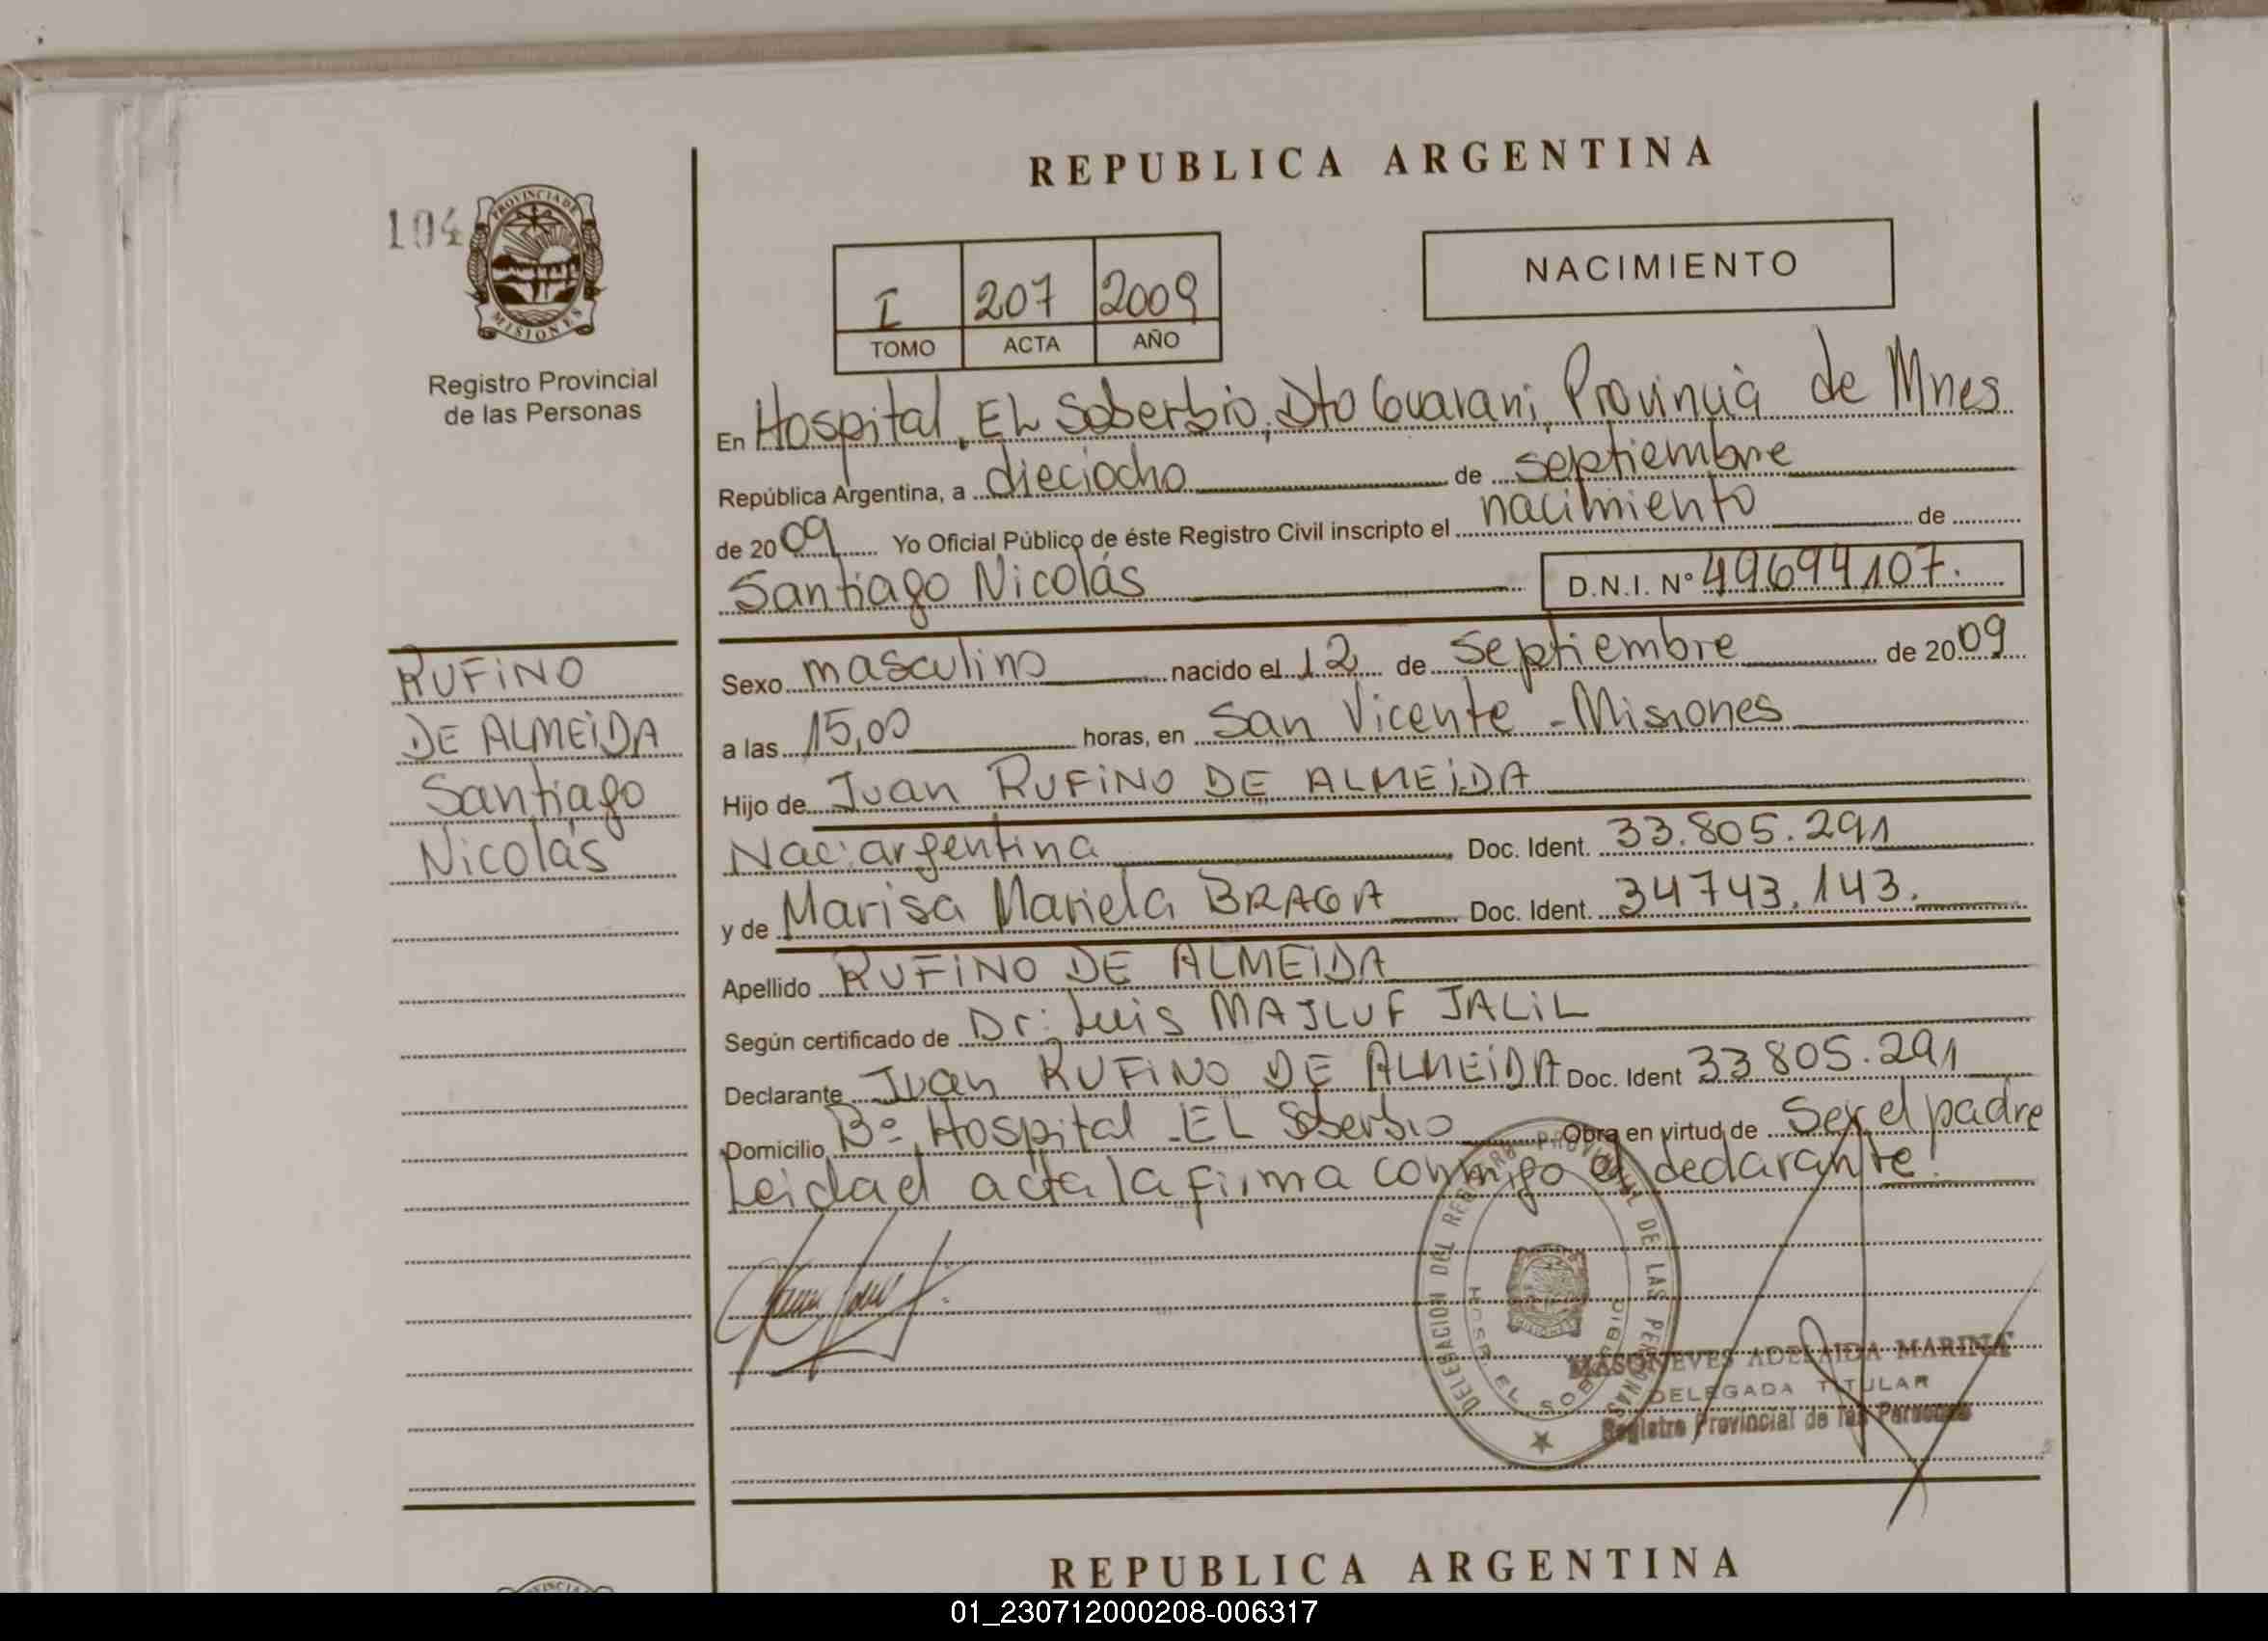 REPUBLICA ARGENTINA
104
PROVINCIA DE
MISIONES
Registro Provincial
de las Personas
NACIMIENTO
I 207 2009
TOMO ACTA AÑO
En Hospital, EL Soberbio, Dto Guarani, Provincia de Mnes
República Argentina, a dieciocho de septiembre
de 2009 Yo Oficial Público de éste Registro Civil inscripto el nacimiento de
Santiago Nicolás D.N.I. Nº 49694107.
Sexo masculino nacido el 12 de septiembre de 2009
a las 15,00 horas, en San Vicente - Misiones
Hijo de Juan RUFINO DE ALMEIDA
Nac: argentina Doc. Ident. 33.805.291
y de Marisa Mariela BRAGA Doc. Ident. 34743.143.
Apellido RUFINO DE ALMEIDA
Según certificado de Dr: Luis MAJLUF JALIL
Declarante Juan RUFINO DE ALMEIDA Doc. Ident 33805.291
Domicilio Bº Hospital - EL Soberbio Obra en virtud de Ser el padre
Leidad acta la firma conmigo el declarante.
RUFINO
DE ALMEIDA
Santiago
Nicolás
DELEGACION DEL REGISTRO PROVINCIAL DE LAS PERSONAS
HOSP. EL SOBERBIO
MASONEVES ADELAIDA MARINA
DELEGADA TITULAR
Registro Provincial de las Personas
REPUBLICA ARGENTINA
01_230712000208-006317